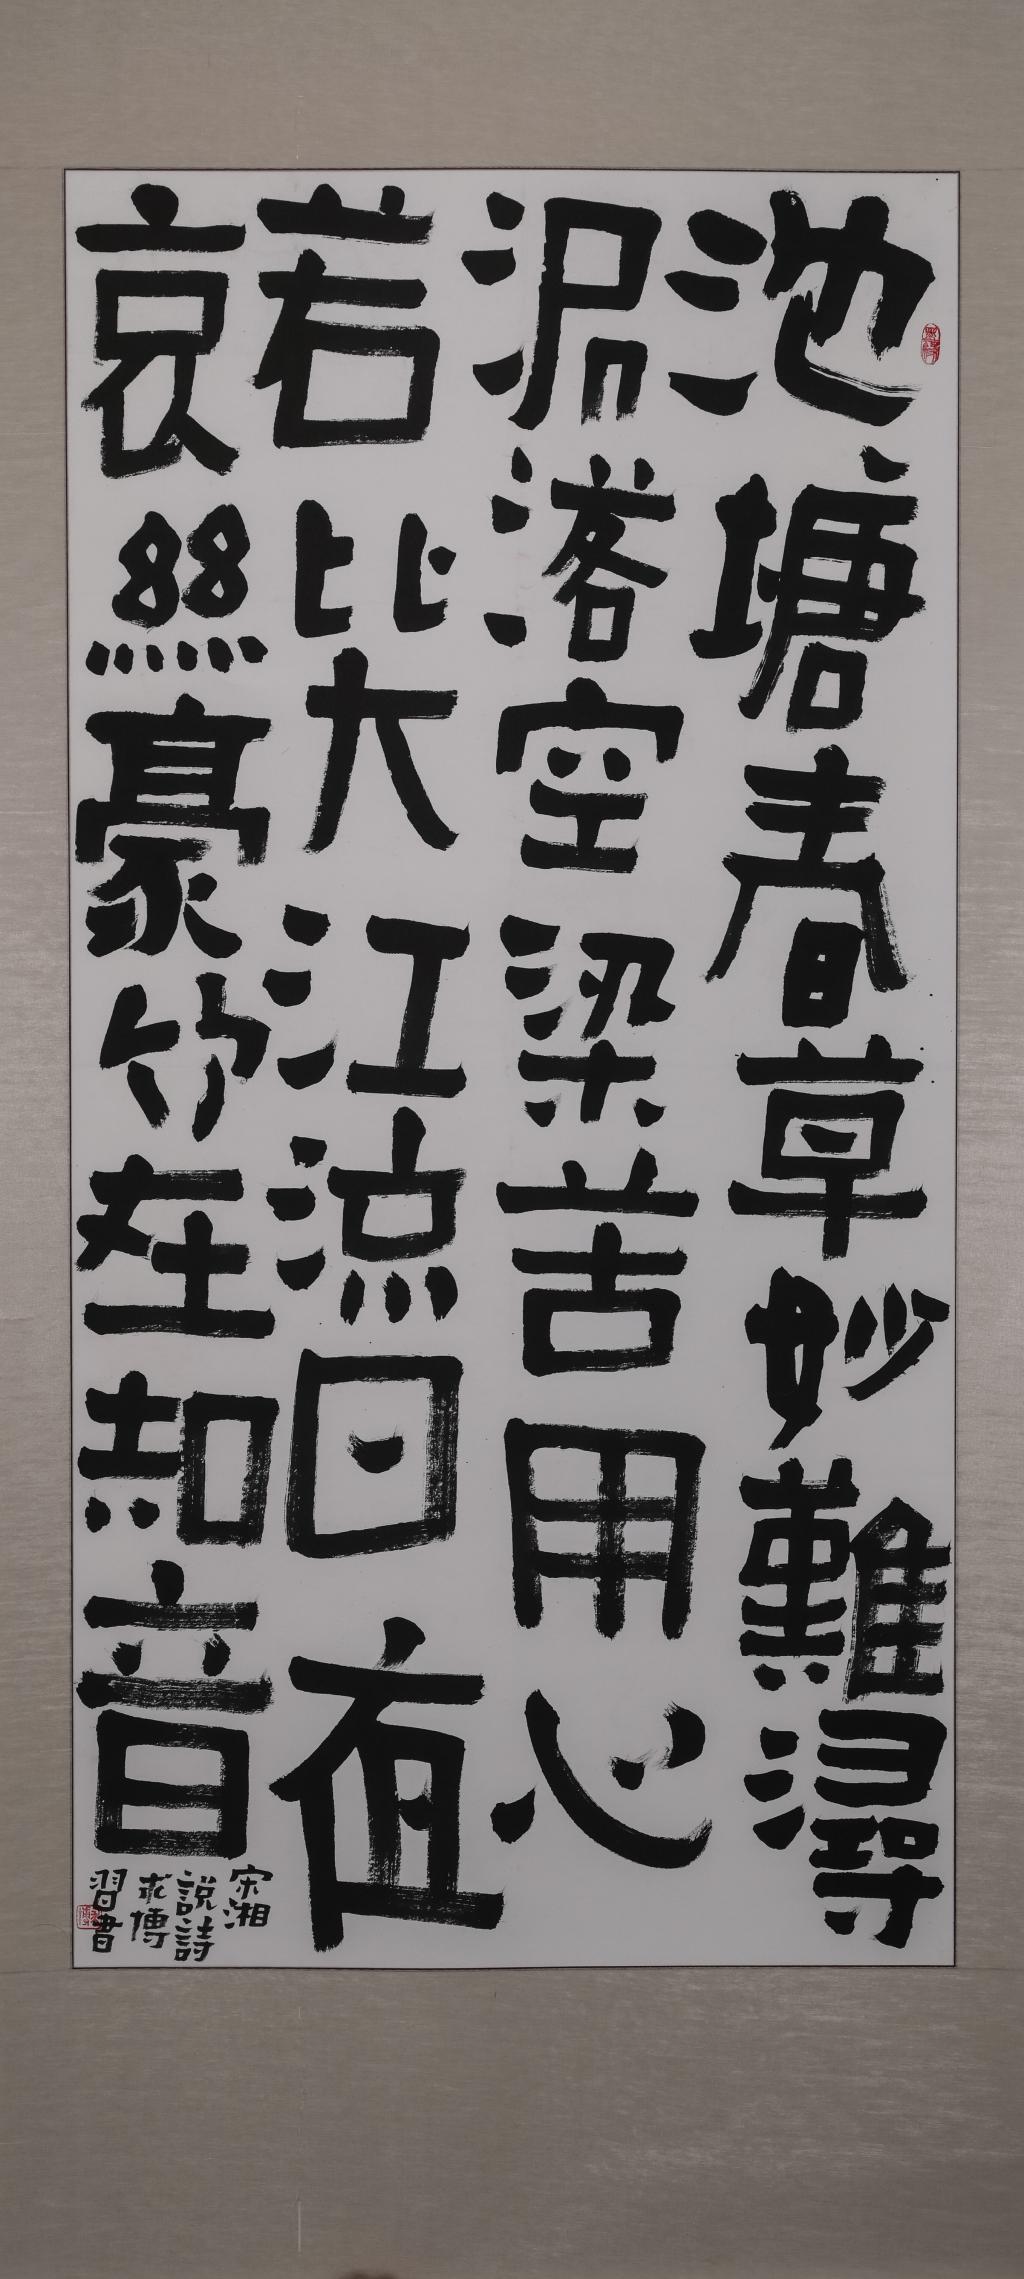 池塘春草妙難潯
泥落空梁苦用心
若比大江流日夜
哀絲豪竹在知音
宋湘
說詩
求傳
習書